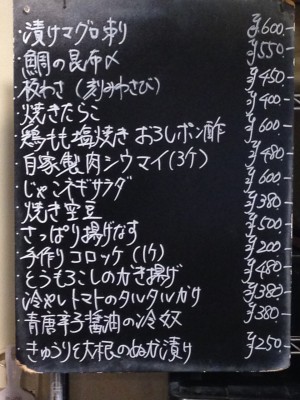 漬けマグロ刺り ¥600.
鯛の昆布〆 ¥550
板わさ(刻みわさび) ¥450
焼きたらこ ¥400
鶏もも塩焼き おろしポン酢 ¥600
自家製肉シウマイ(3ケ) ¥480
じゃこネギサラダ ¥600
焼き空豆 ¥380
さっぱり揚げなす ¥500
手作りコロッケ(1ケ) ¥200
とうもろこしのかき揚げ ¥480
冷やしトマトのタルタルがけ ¥380
青唐辛子醤油の冷奴 ¥380
きゅうりと大根のぬか漬け ¥250